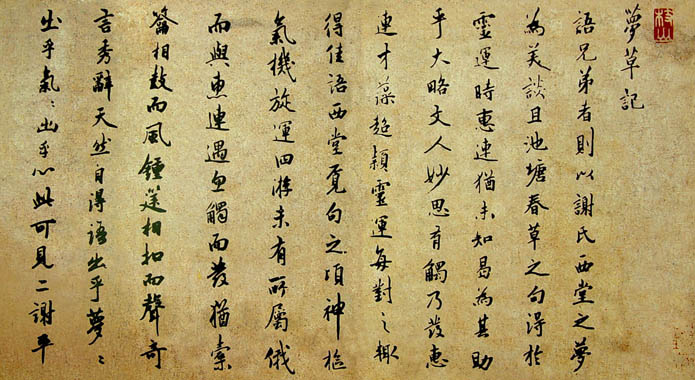 枝山
夢草記
語兄弟者則以謝氏西堂之夢
為美談且池塘春草之句得於
靈運時惠連猶未知曷為其助
乎大略文人妙思有觸乃發惠
連才藻超穎靈運每對之輒
得佳語西堂覓句之頃神樞
氣機旋運四游未有所屬俄
而與惠連遇忽觸而發猶橐
籥相鼓而風鍾莛相扣而聲奇
言秀辭天然自得語出乎夢〻
出乎氣〻出乎心此可見二謝平